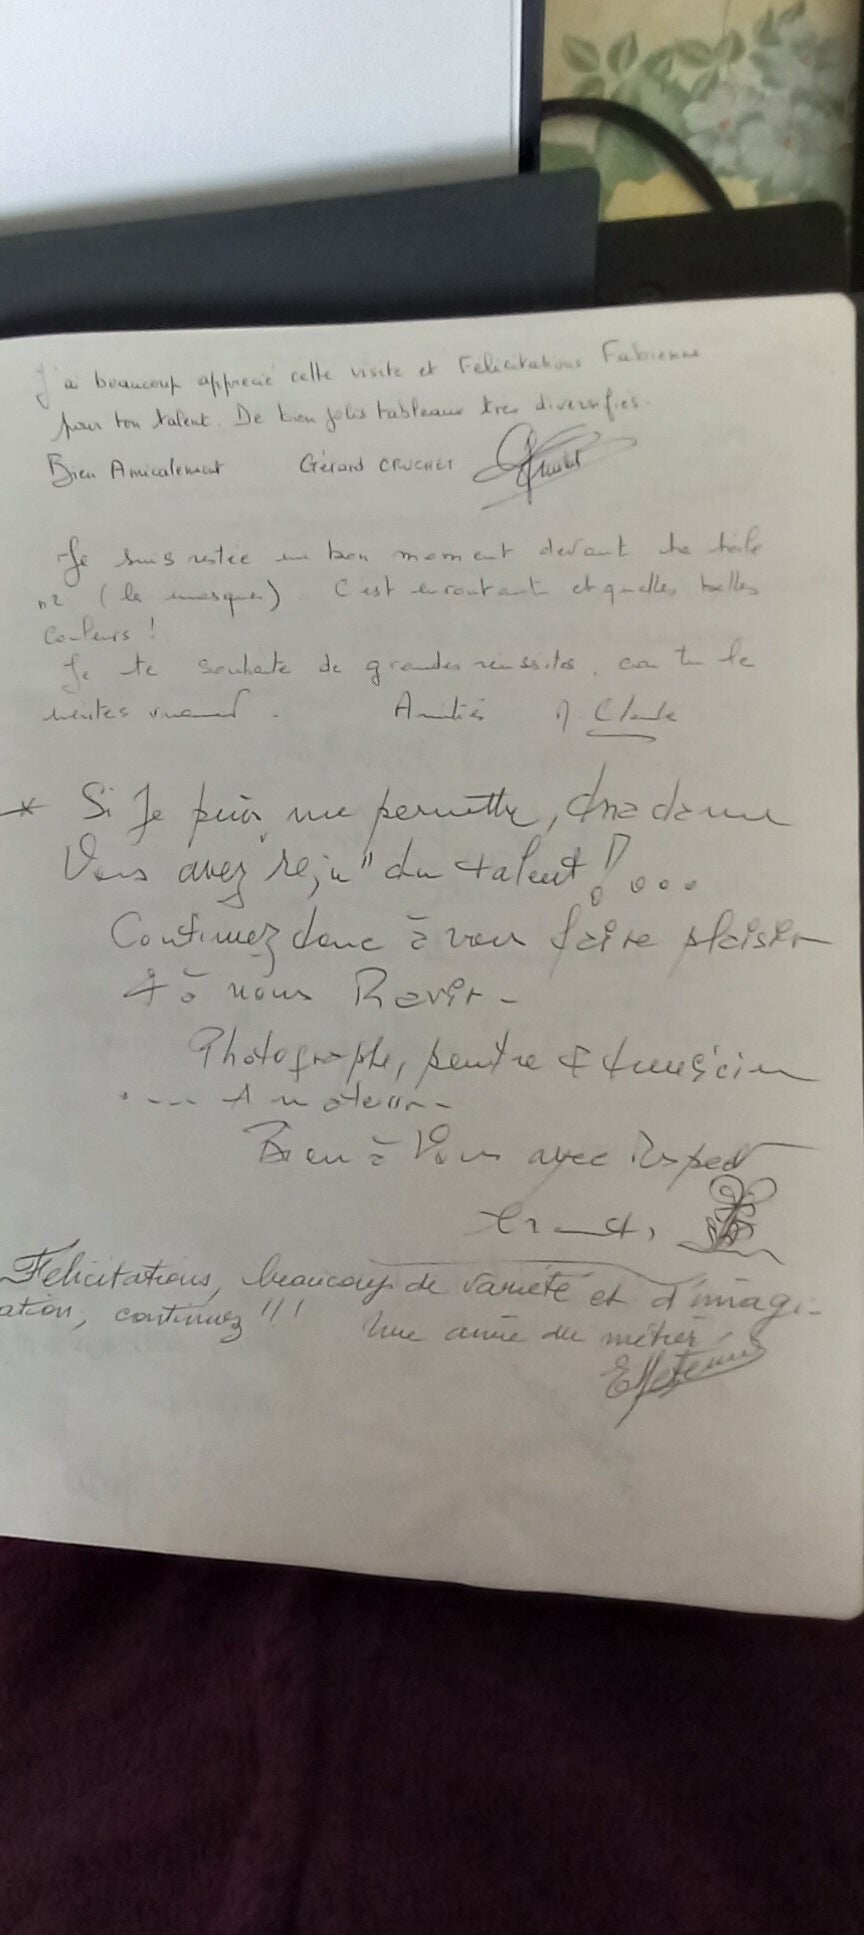 J'ai beaucoup apprecié cette visite et Félicitations Fabienne
pour ton talent. De bien jolis tableaux très diversifiés.
Bien Amicalement Gérard CRUCHET
Je suis restée un bon moment devant ta toile
n2 (le masque) C'est envoutant et quelles belles
couleurs !
Je te souhaite de grandes réussites, car tu le
mérites vraiment. Amitiés
* Si Je puis me permettre, Madame
Vous avez "reçu" du talent !...
Continuez donc à vous faire plaisir
& à nous Ravir -
Photographe, peintre & musicien
.... Amateur --
Bien à Vous avec Respect
Felicitations, beaucoup de variété et d'imagi-
ation, continuez !!! Une amie du métier